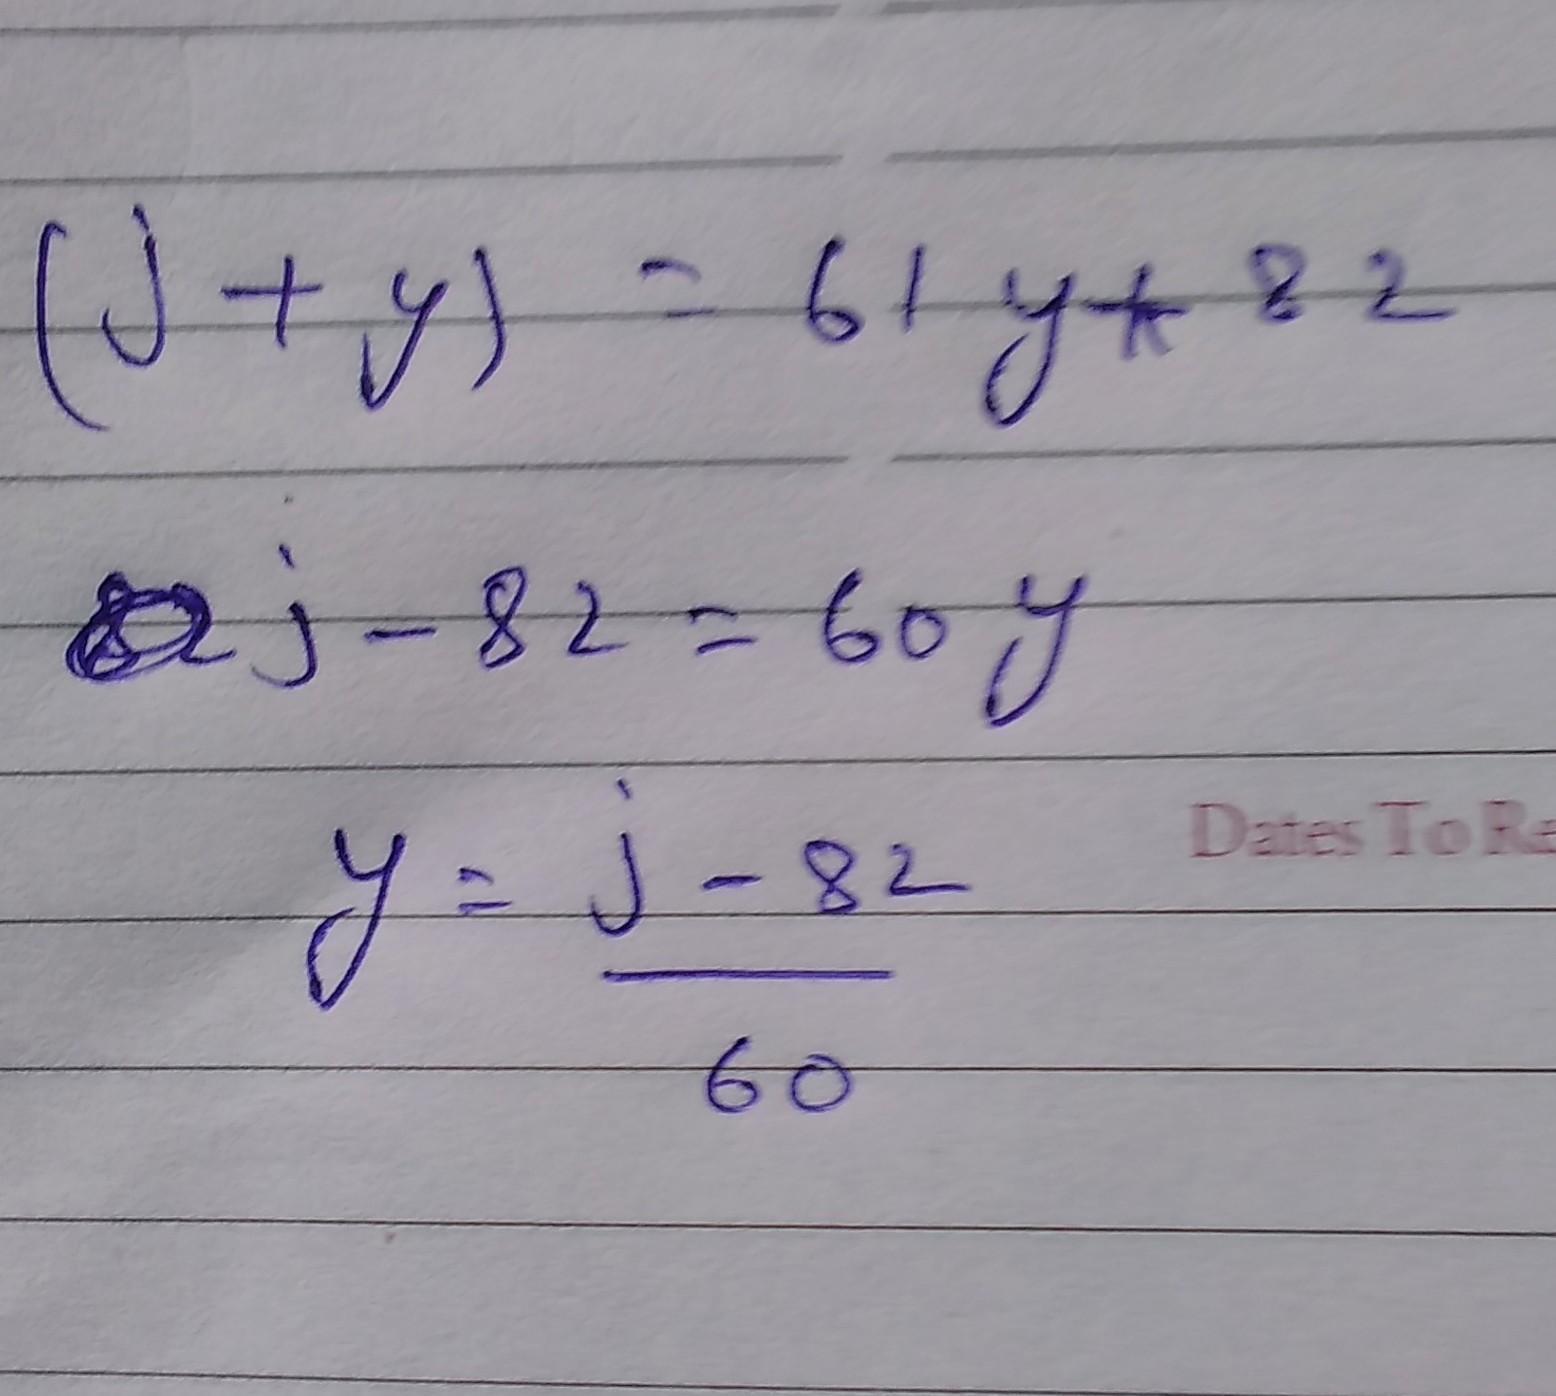 (j + y) = 61y + 82
j - 82 = 60y
Dates To Re
y = j - 82
60